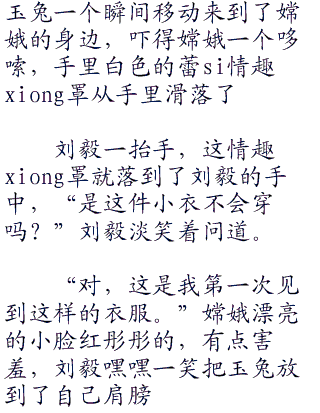 玉兔一个瞬间移动来到了嫦
娥的身边，吓得嫦娥一个哆
嗦，手里白色的蕾si情趣
xiong罩从手里滑落了
刘毅一抬手，这情趣
xiong罩就落到了刘毅的手
中，“是这件小衣不会穿
吗？”刘毅淡笑着问道。
“对，这是我第一次见
到这样的衣服。”嫦娥漂亮
的小脸红彤彤的，有点害
羞，刘毅嘿嘿一笑把玉兔放
到了自己肩膀